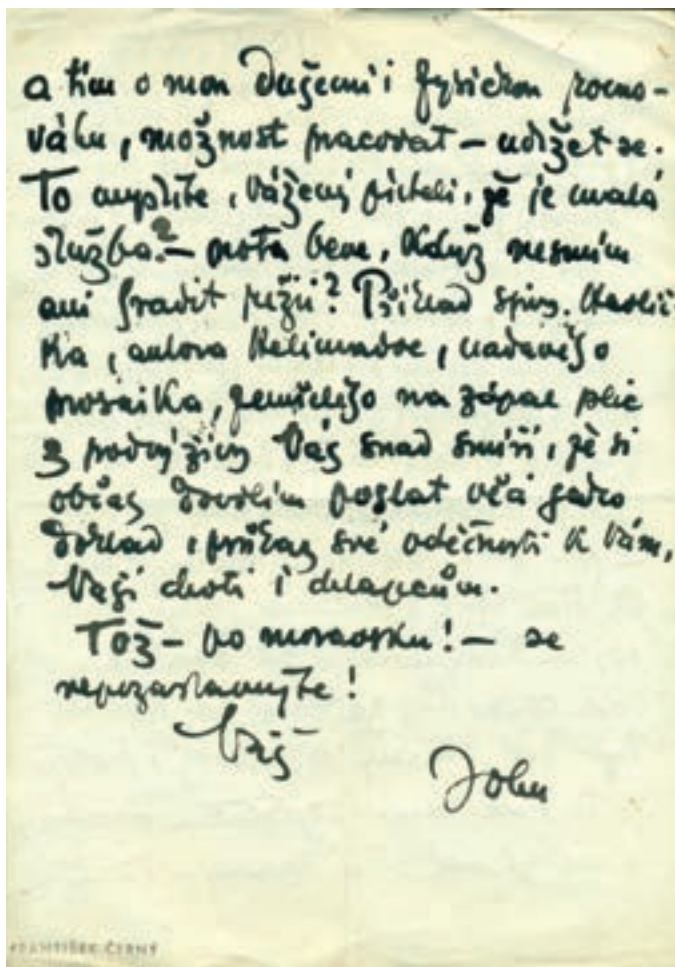 a tím o mou duševní i fysickou rovno-
váhu, možnost pracovat – udržet se.
To myslíte, vážený příteli, že je malá
služba? – nota bene, když nesmím
ani hradit režii? Příklad spis. Havlíč-
ka, autora Helimadoe, nadaného
prosaika, zemřelého na zápal plic
z podvýživy Vás snad smíří, že si
občas dovolím poslat Vám jako
doklad, průkaz své vděčnosti k Vám,
Vaší choti i chlapcům.
Tož – po moravsku! – se
nepozastavujte!
Váš
John
FRANTIŠEK ČERNÝ